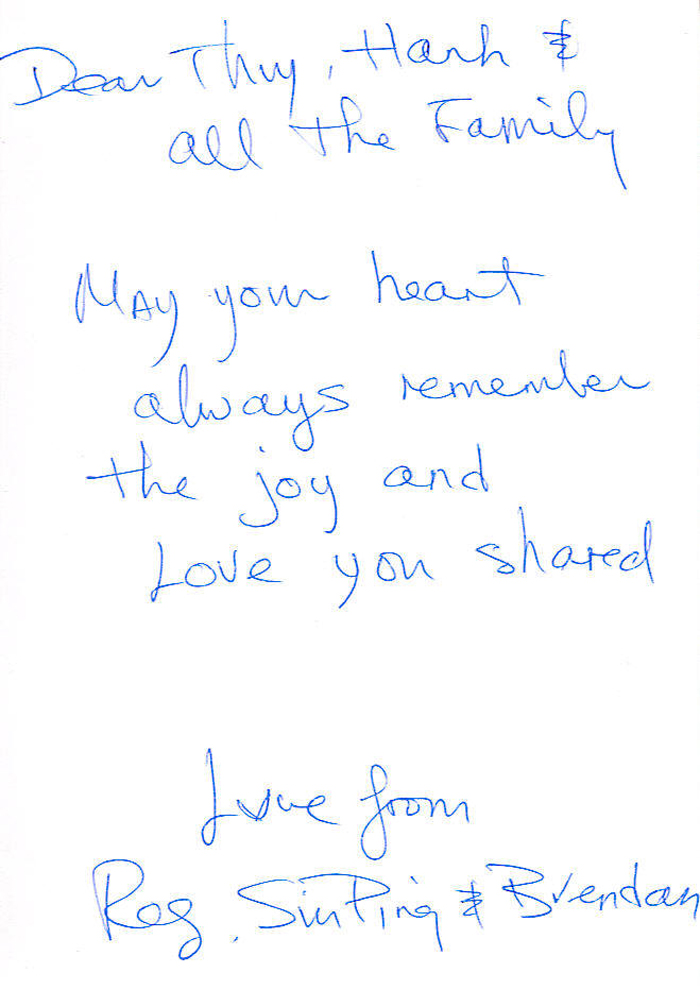 Dear Thuy, Hanh &
all the Family
May your heart
always remember
the joy and
Love you shared
Love from
Reg, SiuPing & Brendan